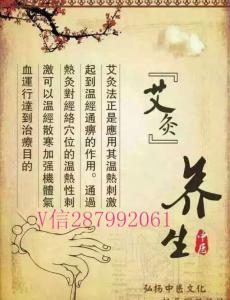 『艾灸』
养生
中医
艾灸法正是應用其溫熱刺激
起到溫經通痹的作用。通過
熱灸對經絡穴位的溫熱性刺
激可以溫經散寒加强機體氣
血運行達到治療目的
V信287992061
弘扬中医文化